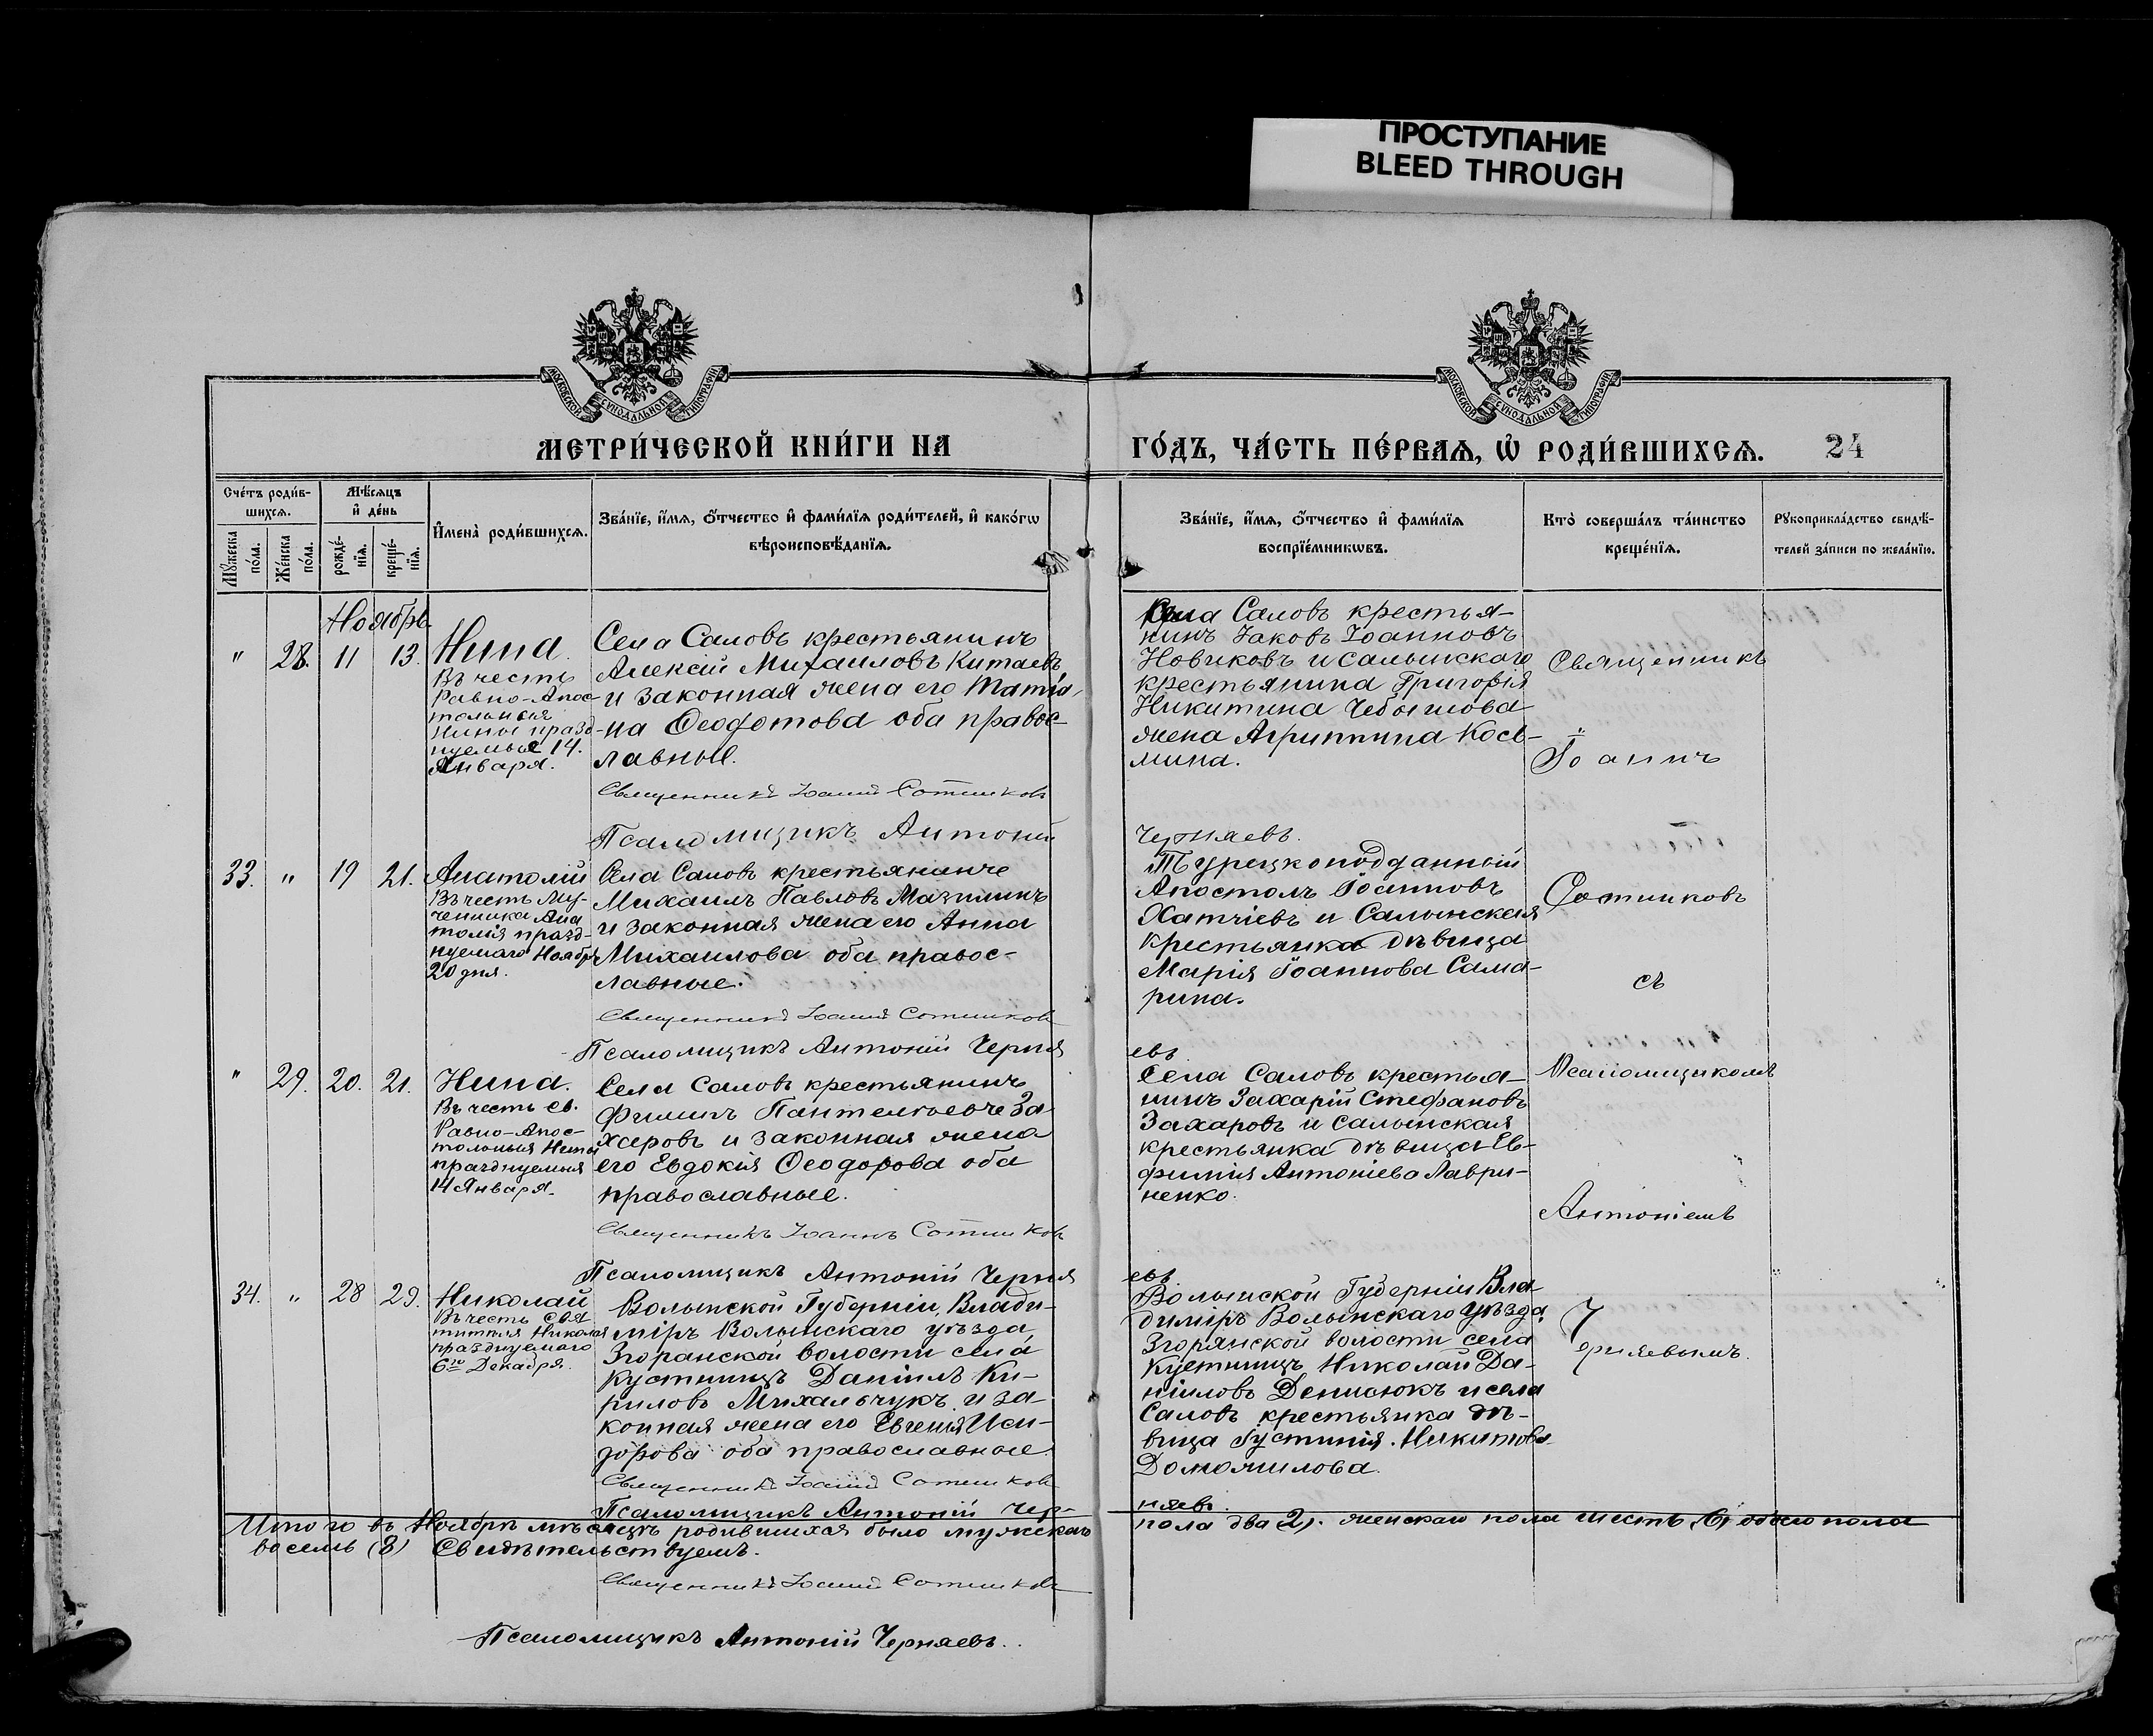 ПРОСТУПАНИЕ
BLEED THROUGH
МОСКОВСКОЙ СѴНОДАЛЬНОЙ ТИПОГРАФІИ
МОСКОВСКОЙ СѴНОДАЛЬНОЙ ТИПОГРАФІИ
МЕТРИ́ЧЕСКОЙ КНИ́ГИ НА
ГО́ДЪ, ЧА́СТЬ ПЕ́РВАѦ, Ѡ РОДИ́ВШИХСѦ.
24
Сче́тъ роди́в-
шихсѧ.
Мꙋ́жеска
по́ла.
Же́нска
по́ла.
Мѣ́сѧцъ
и҆ де́нь
рожде́-
нїѧ.
креще́-
нїѧ.
И҆мена̀ роди́вшихсѧ.
Зва́нїе, и҆́мѧ, ѻ҆́тчество и҆ фами́лїѧ роди́телей, и҆ како́гѡ
вѣроисповѣ́данїѧ.
Зва́нїе, и҆́мѧ, ѻ҆́тчество и҆ фами́лїѧ
воспрїе́мникѡвъ.
Кто̀ соверша́лъ та́инство
креще́нїѧ.
Рꙋкоприкла́дство свидѣ́-
телей за́писи по жела́нїю.
Ноябрь
" 28. 11 13.
Нина.
Въ честь
Равно-Апос-
тольныя
Нины празд-
нуемыя 14.
Января.
Села Саловъ крестьянинъ
Алексій Михаиловъ Китаевъ
и законная жена его Татіа-
на Ѳеодотова оба правос-
лавные.
Священникъ Іоаннъ Сотниковъ
Псаломщикъ Антоній
Села Саловъ крестья-
нинъ Іаковъ Іоанновъ
Новиковъ и салынскаго
крестьянина Григорія
Никитина Чебышова
жена Агриппина Кось-
мина.
Черняевъ.
Священникъ
Іоаннъ
33. " 19 21.
Анатолій
Въ честь Му-
ченика Ана
толія празд-
нуемаго Ноября
20 дня.
Села Саловъ крестьянинъ
Михаилъ Павловъ Мазилинъ
и законная жена его Анна
Михаилова оба правос-
лавные.
Священникъ Іоаннъ Сотниковъ
Псаломщикъ Антоній Черня
Турецкоподданный
Апостолъ Іоанновъ
Хатчіевъ и Салынская
крестьянка дѣвица
Марія Іоаннова Сама-
рина.
евъ
Сотниковъ
съ
" 29. 20. 21.
Нина.
Въ честь св.
Равно-Апос-
тольныя Нины
празднуемыя
14 Января.
Села Саловъ крестьянинъ
Филипъ Пантелѣевъ За-
харовъ и законная жена
его Евдокія Ѳеодорова оба
православные.
Священникъ Іоаннъ Сотниковъ
Псаломщикъ Антоній Черня
Села Саловъ крестья-
нинъ Захарій Стефановъ
Захаровъ и салынская
крестьянка дѣвица Ев-
фимія Антоніева Лаври-
ненко.
евъ.
Псаломщикомъ
Антоніемъ
34. " 28 29.
Николай
Въ честь Свя
тителя Николая
празднуемаго
6го Декабря.
Волынской Губерніи, Влади-
міръ Волынскаго уѣзда,
Згоранской волости села
Кустницъ Даніилъ Ки-
риловъ Михальчукъ и за-
конная жена его Евгенія Иси-
дорова оба православные.
Священникъ Іоаннъ Сотниковъ
Псаломщикъ Антоній Чер-
Волынской Губерніи Вла-
диміръ Волынскаго уѣзда,
Згорянской волости села
Кустницъ Николай Да-
ніиловъ Денисюкъ и села
Саловъ крестьянка дѣ-
вица Іустинія Никитова
Доможилова.
няевъ.
Черняевымъ.
Итого въ Ноябрѣ мѣсяцѣ родившихся было мужскаго пола два 2). женскаго пола шесть (6) обоего пола
восемь (8) Свидѣтельствуемъ.
Священникъ Іоаннъ Сотниковъ
Псаломщикъ Антоній Черняевъ.